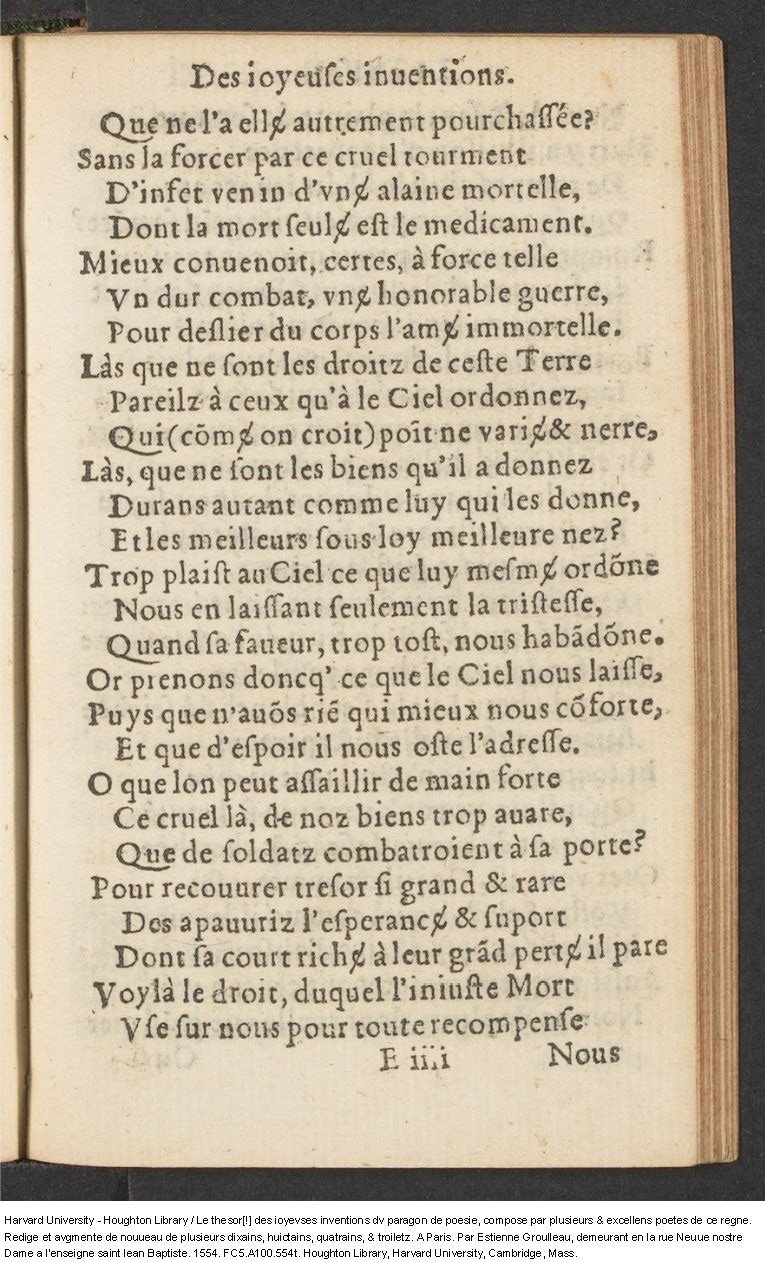 Des ioyeuſes inuentions.
Que ne l'a ellɇ autrement pourchaſſée?
Sans la forcer par ce cruel tourment
D'infet venin d'vnɇ alaine mortelle,
Dont la mort ſeulɇ eſt le medicament.
Mieux conuenoit, certes, à force telle
Vn dur combat, vnɇ honorable guerre,
Pour deſlier du corps l'amɇ immortelle.
Làs que ne ſont les droitz de ceſte Terre
Pareilz à ceux qu'à le Ciel ordonnez,
Qui (cõmɇ on croit) poĩt ne variɇ & nerre,
Làs, que ne ſont les biens qu'il a donnez
Durans autant comme luy qui les donne,
Et les meilleurs ſous loy meilleure nez?
Trop plaiſt au Ciel ce que luy meſmɇ ordõne
Nous en laiſſant ſeulement la triſteſſe,
Quand ſa faueur, trop toſt, nous habãdõne.
Or prenons doncq' ce que le Ciel nous laiſſe,
Puys que n'auõs riẽ qui mieux nous cõforte,
Et que d'eſpoir il nous oſte l'adreſſe.
O que lon peut aſſaillir de main forte
Ce cruel là, de noz biens trop auare,
Que de ſoldatz combatroient à ſa porte?
Pour recouurer treſor ſi grand & rare
Des apauuriz l'eſperancɇ & ſuport
Dont ſa court richɇ à leur grãd pertɇ il pare
Voylà le droit, duquel l'iniuſte Mort
Vſe ſur nous pour toute recompenſe
E iiii Nous
Harvard University - Houghton Library / Le thesor[!] des ioyevses inventions dv paragon de poesie, compose par plusieurs & excellens poetes de ce regne.
Redige et avgmente de nouueau de plusieurs dixains, huictains, quatrains, & troiletz. A Paris. Par Estienne Groulleau, demeurant en la rue Neuue nostre
Dame a l'enseigne saint Iean Baptiste. 1554. FC5.A100.554t. Houghton Library, Harvard University, Cambridge, Mass.